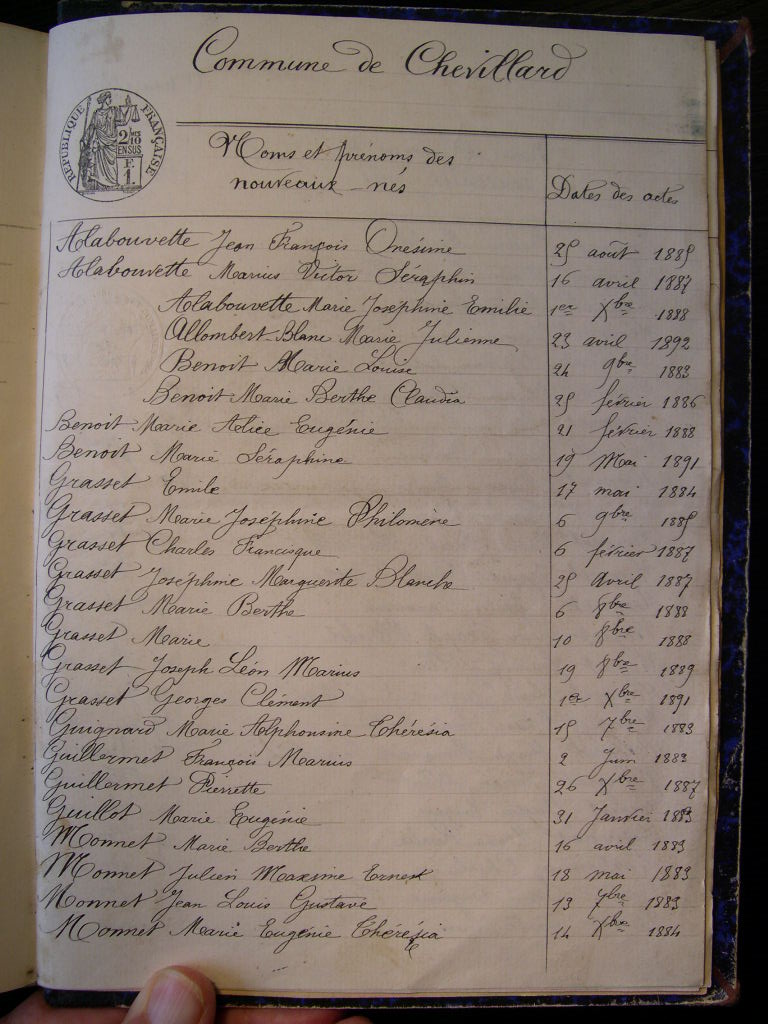 Commune de Chevillard
RÉPUBLIQUE FRANÇAISE
2/10 EN SUS
F. 1.
Noms et prénoms des
nouveaux-nés
Dates des actes
Alabouvette Jean François Onésime 25 août 1885
Alabouvette Marius Victor Séraphin 16 avril 1887
Alabouvette Marie Joséphine Emilie 1er Xbre 1888
Allombert-Blanc Marie Julienne 23 avril 1892
Benoit Marie Louise 24 9bre 1883
Benoit Marie Berthe Claudia 25 février 1886
Benoit Marie Alice Eugénie 21 février 1888
Benoit Marie Séraphine 19 Mai 1891
Grasset Emile 17 mai 1884
Grasset Marie Joséphine Philomène 6 9bre 1885
Grasset Charles Francisque 6 février 1887
Grasset Joséphine Marguerite Blanche 25 Avril 1887
Grasset Marie Berthe 6 8bre 1888
Grasset Marie 10 8bre 1888
Grasset Joseph Léon Marius 19 8bre 1889
Grasset Georges Clément 1er Xbre 1891
Guignard Marie Alphonsine Thérésia 15 7bre 1883
Guillermet François Marius 2 Juin 1883
Guillermet Pierrette 26 Xbre 1887
Guillot Marie Eugénie 31 Janvier 1883
Monnet Marie Berthe 16 avril 1883
Monnet Julien Maxime Ernest 18 mai 1883
Monnet Jean Louis Gustave 13 7bre 1883
Monnet Marie Eugénie Thérésia 14 Xbre 1884